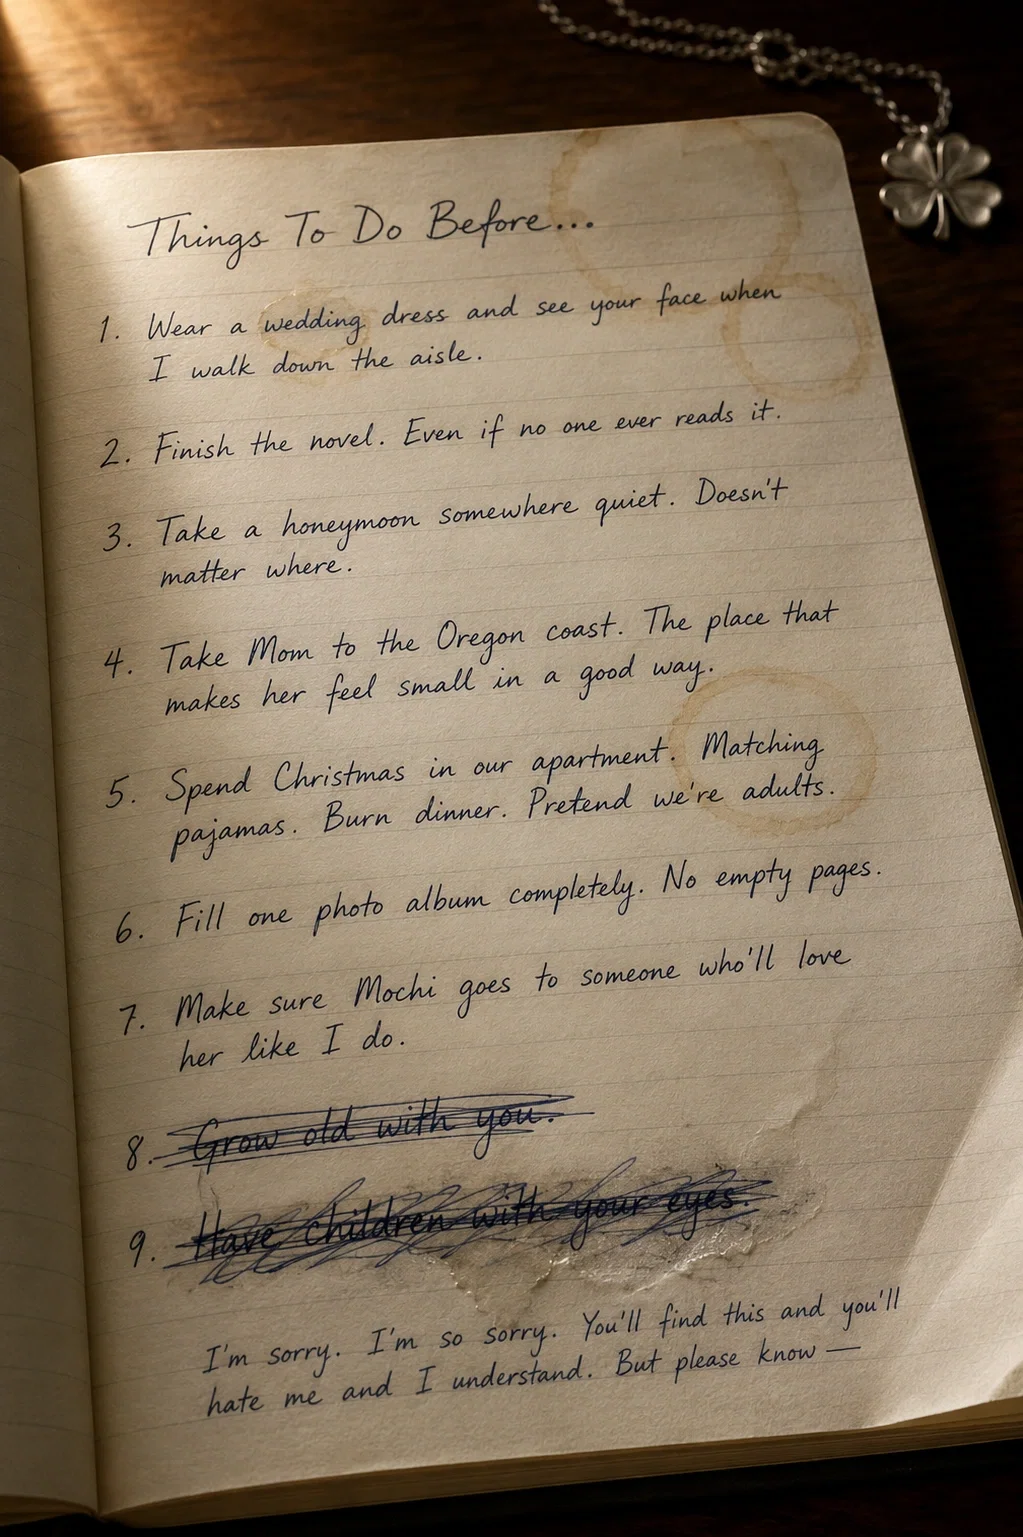 Things To Do Before...
1. Wear a wedding dress and see your face when
I walk down the aisle.
2. Finish the novel. Even if no one ever reads it.
3. Take a honeymoon somewhere quiet. Doesn't
matter where.
4. Take Mom to the Oregon coast. The place that
makes her feel small in a good way.
5. Spend Christmas in our apartment. Matching
pajamas. Burn dinner. Pretend we're adults.
6. Fill one photo album completely. No empty pages.
7. Make sure Mochi goes to someone who'll love
her like I do.
8. Grow old with you.
9. Have children with your eyes.
I'm sorry. I'm so sorry. You'll find this and you'll
hate me and I understand. But please know —